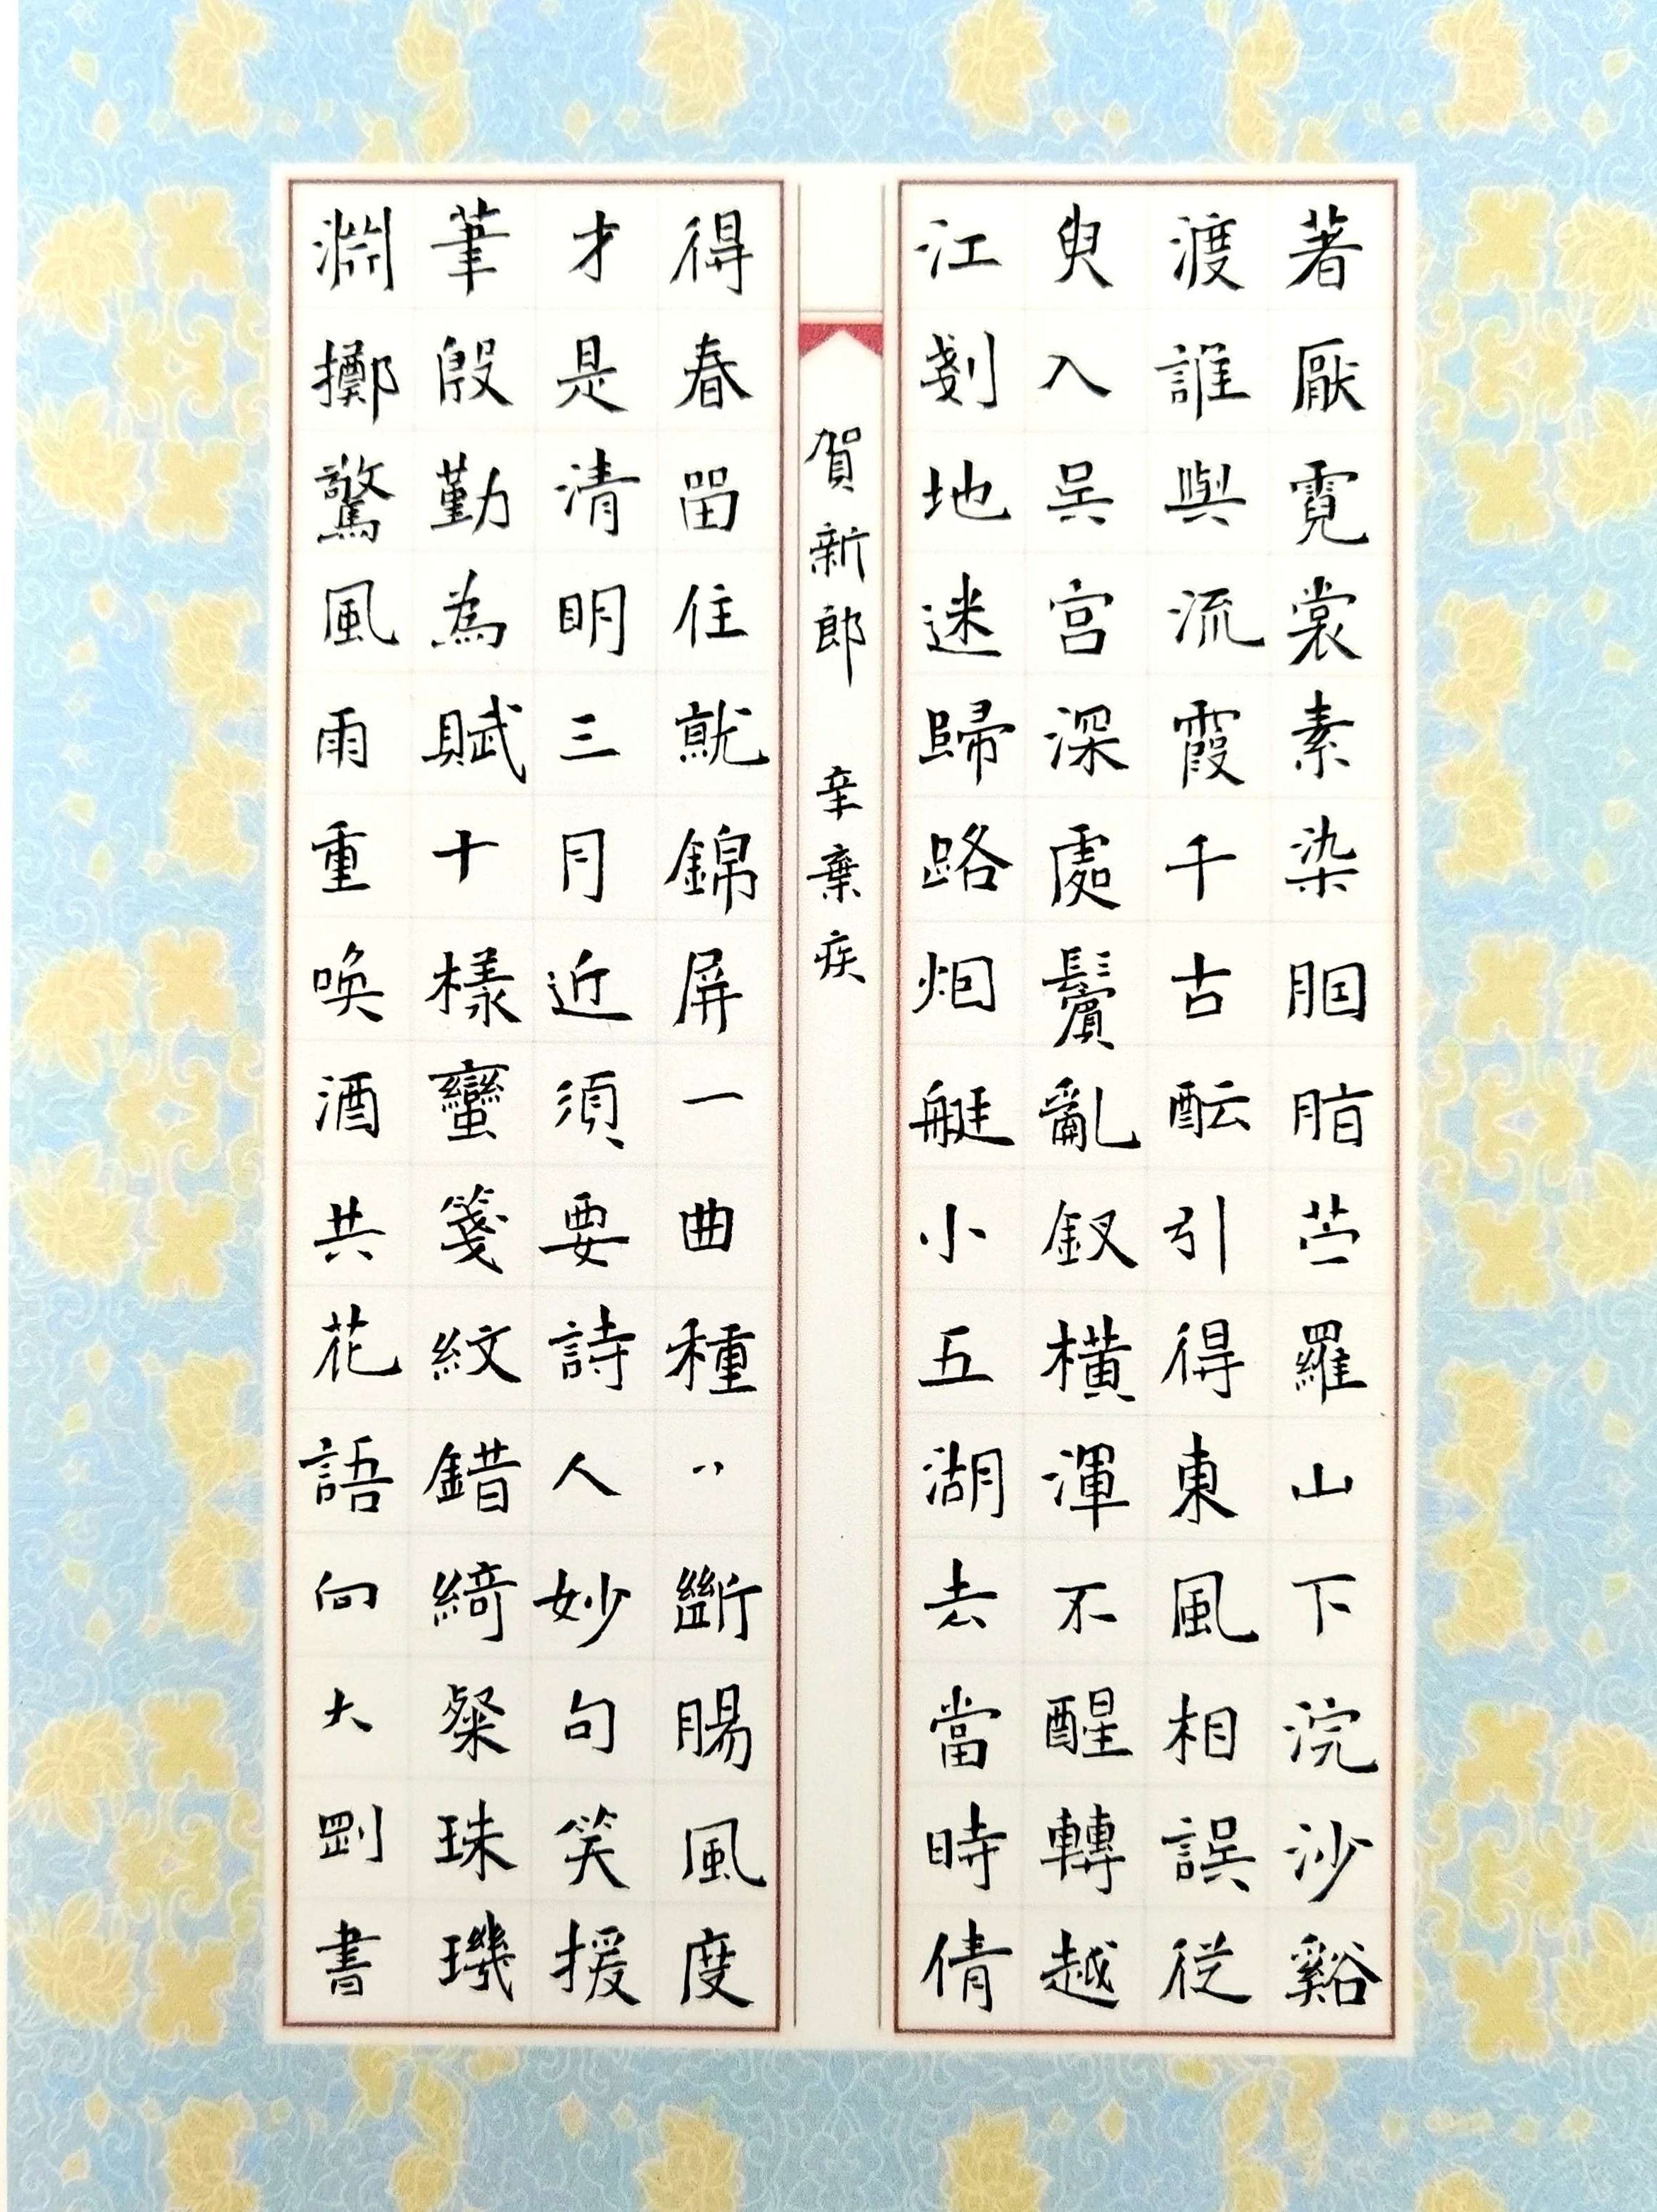 著厭霓裳素染胭脂苎羅山下浣沙谿
渡誰與流霞千古酝引得東風相誤從
臾入吳宮深處鬢亂釵橫渾不醒轉越
江剗地迷歸路烟艇小五湖去當時倩
賀新郎 辛棄疾
得春留住就錦屏一曲種〻斷腸風度
才是清明三月近須要詩人妙句笑援
筆殷勤為賦十樣蠻箋紋錯綺粲珠璣
淵擲驚風雨重喚酒共花語向大剛書